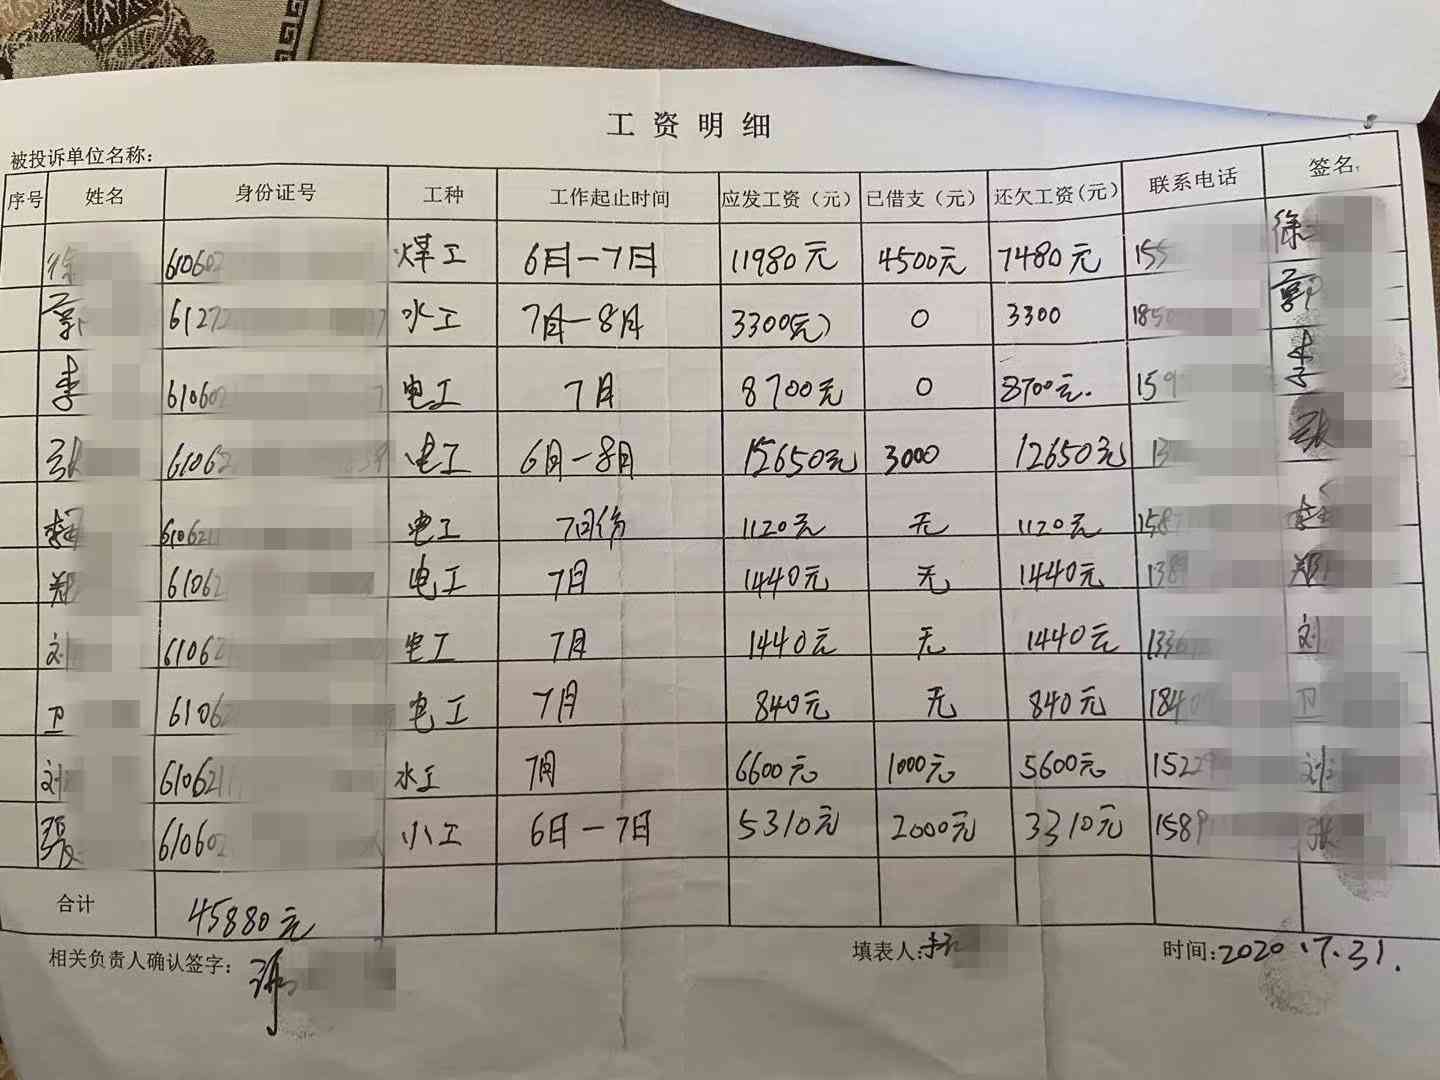 工资明细
被投诉单位名称：
序号 姓名 身份证号 工种 工作起止时间 应发工资（元） 已借支（元） 还欠工资(元) 联系电话 签名
徐 610602 煤工 6月—7月 11980元 4500元 7480元 155 徐
郭 6127 水工 7月—8月 3300(元) 0 3300 1850 郭
李 610602 电工 7月 8700元 0 8700元. 159 李
张 61062 电工 6月—8月 15650元 3000 12650元 13 张
610621 电工 7月份 1120元 无 1120元 1587
郑 61062 电工 7月 1440元 无 1440元 138 郑
刘 61062 电工 7月 1440元 无 1440元 1336 刘
卫 61062 电工 7月 840元 无 840元 1840 卫
刘 610621 水工 7月 6600元 1000元 5600元 1522 刘
张 610602 小工 6月—7月 5310元 2000元 3310元 1589 张
合计 45880元
相关负责人确认签字： 填表人: 时间:2020.7.31.